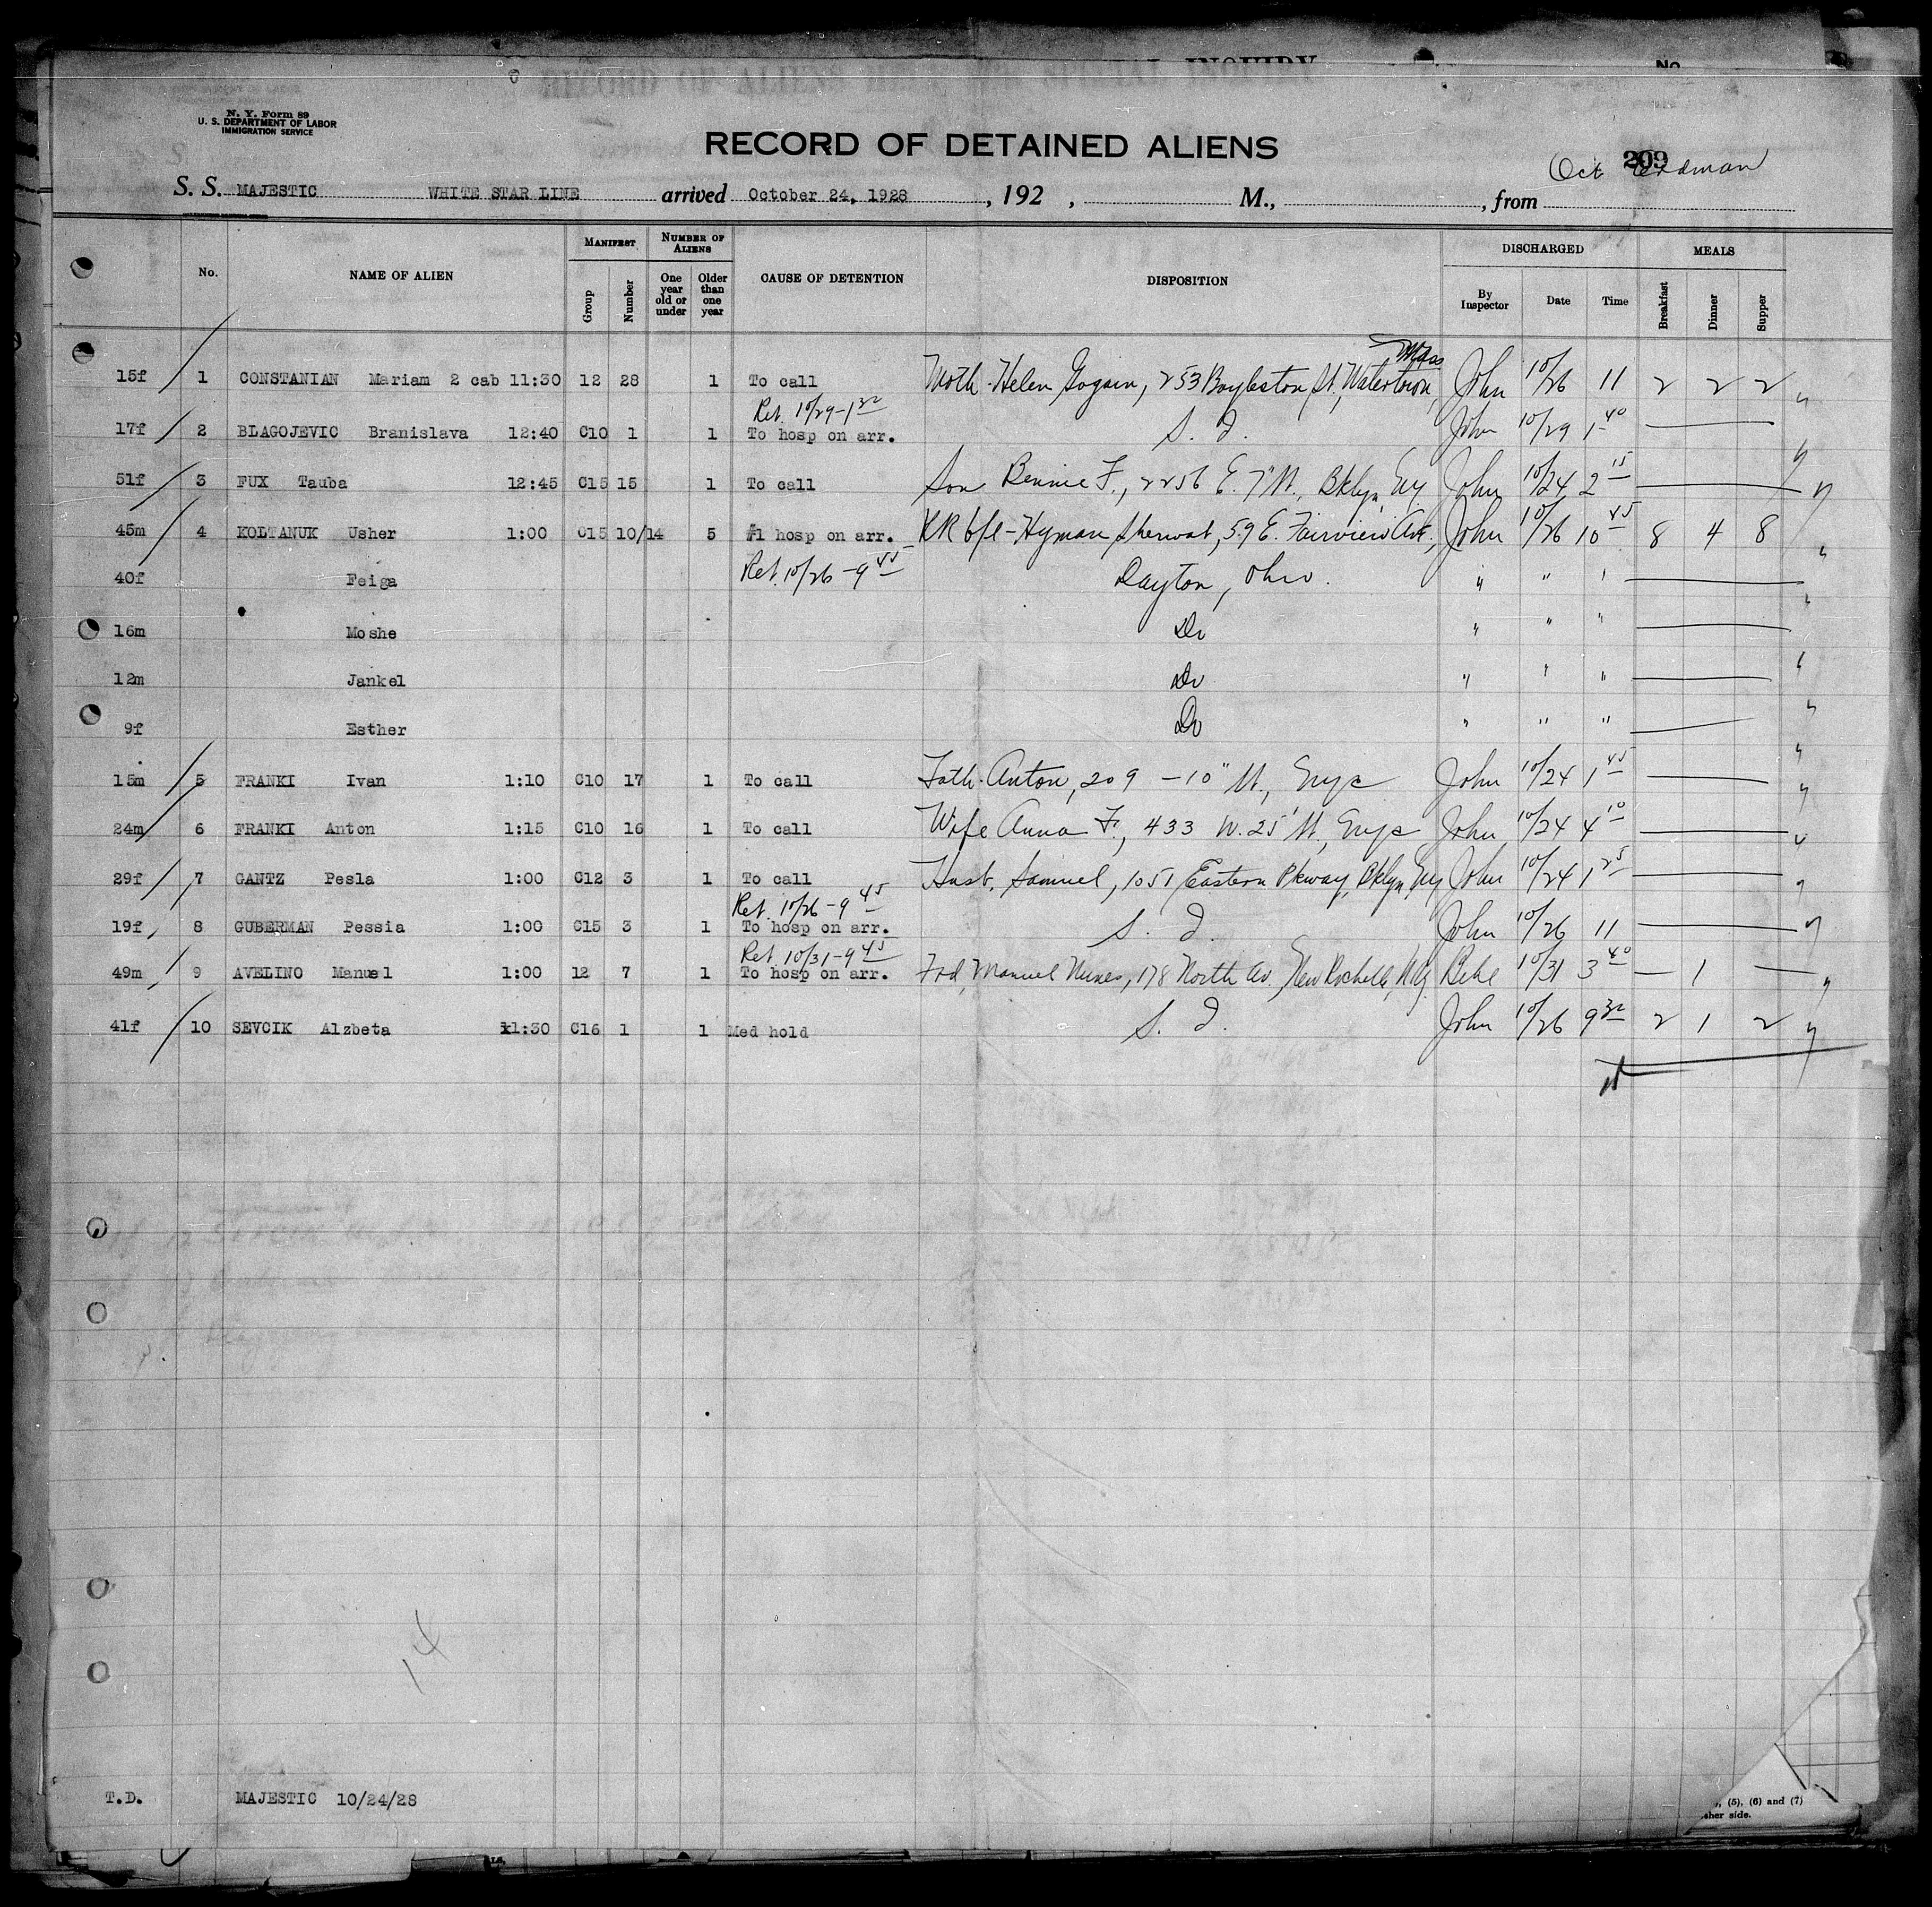 INQUIRY
No.
N. Y. Form 89
U. S. DEPARTMENT OF LABOR
IMMIGRATION SERVICE
RECORD OF DETAINED ALIENS
209
Oct Erdman
S. S. MAJESTIC WHITE STAR LINE arrived October 24, 1928, 192 , M., , from
No. NAME OF ALIEN MANIFEST Group Number NUMBER OF ALIENS One year old or under Older than one year CAUSE OF DETENTION DISPOSITION DISCHARGED By Inspector Date Time MEALS Breakfast Dinner Supper
Mass
15f 1 CONSTANIAN Mariam 2 cab 11:30 12 28 1 To call Moth. Helen Gogain, 253 Boylston St., Watertown, John 10/26 11 2 2 2 "
Ret. 10/29-1 30
17f 2 BLAGOJEVIC Branislava 12:40 C10 1 1 To hosp on arr. S. I. John 10/29 1 40 "
51f 3 FUX Tauba 12:45 C15 15 1 To call Son Bennie F., 2256 E. 7" St., Bklyn Ny John 10/24 2 15 "
45m 4 KOLTANUK Usher 1:00 C15 10/14 5 #1 hosp on arr. RR b/l - Hyman Sherwat, 59 E. Fairview Ave., John 10/26 10 45 8 4 8 "
40f Feiga Ret. 10/26-9 45 Dayton, Ohio. " " " "
16m Moshe Do " " " "
12m Jankel Do " " " "
9f Esther Do " " " "
15m 5 FRANKI Ivan 1:10 C10 17 1 To call Fath. Anton, 209 - 10" St., Nyc John 10/24 1 45 "
24m 6 FRANKI Anton 1:15 C10 16 1 To call Wife Anna F., 433 W. 25" St., Nyc John 10/24 4 10 "
29f 7 GANTZ Pesla 1:00 C12 3 1 To call Husb. Samuel, 1051 Eastern Pkway, Bklyn Ny John 10/24 1 25 "
Ret. 10/26-9 45
19f 8 GUBERMAN Pessia 1:00 C15 3 1 To hosp on arr. S. I. John 10/26 11 "
Ret 10/31-9 45
49m 9 AVELINO Manuel 1:00 12 7 1 To hosp on arr. Frd, Manuel Nunes, 178 North Av., New Rochelle, N.Y. 10/31 3 40 1 "
41f 10 SEVCIK Alzbeta 11:30 C16 1 1 Med hold S. I. John 10/26 9 30 2 1 2 "
14
T.D. MAJESTIC 10/24/28
, (5), (6) and (7)
other side.